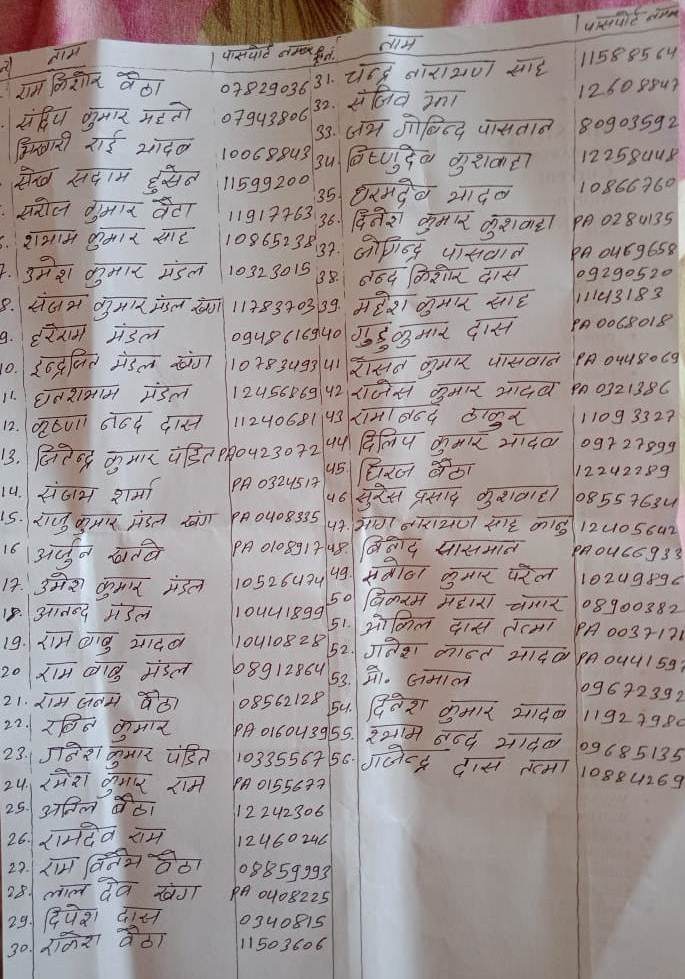 नाम पासपोर्ट नम्बर
राम किशोर बैठा 07829036
संदिप कुमार महतो 07943806
भिखारी राई यादव 10068843
सेख सदाम हुसेन 11599200
सरोज कुमार बैठा 11917763
श्याम कुमार साह 10865238
7. उमेश कुमार मंडल 10323015
8. संजय कुमार मंडल खंग 11783703
9. हरेराम मंडल 09486169
10. इन्द्रजित मंडल खंग 10783493
11. घनश्याम मंडल 12456869
12. कृष्णा नन्द दास 11240681
13. जितेन्द्र कुमार पंडित PA0423072
14. संजय शर्मा PA 0324517
15. राजु कुमार मंडल खंग PA 0408335
16 अर्जुन खतवे PA 0108917
17. उमेश कुमार मंडल 10526474
18. आनन्द मंडल 10441899
19. राम बाबु यादव 10410828
20 राम बाबु मंडल 08912864
21. राम जनम बैठा 08562128
22. रबिन कुमार PA 0160439
23. गनेश कुमार पंडित 10335567
24. रमेश कुमार राम PA 0155677
25. अनिल बैठा 12242306
26. रामदेव राम 12460246
27. राम विनय बैठा 08859993
28. लाल देव खंग PA 0408225
29. दिपेश दास 0340815
30. राकेश बैठा 11503606
नाम पासपोर्ट नम्बर
31. चन्द्र नारायण साह 11588564
32. संजिव झा 12608847
33. जय गोबिन्द पासवान 80903592
34. बिष्णुदेव कुशवाहा 12258448
35. धरमदेव यादव 10866760
36. दिनेश कुमार कुशवाहा PA 0284135
37. जोगिन्द्र पासवान PA 0469658
38. नन्द किशोर दास 09290520
39. महेश कुमार साह 11143183
40 गुड्डु कुमार दास PA 0068018
41 रौसन कुमार पासवान PA 0448069
42 राजेस कुमार यादव PA 0321386
43 रामानन्द ठाकुर 11093327
44. दिलिप कुमार यादव 09727899
45. धिरज बैठा 12242289
46 सुरेस प्रसाद कुशवाहा 08557634
47. नारायण साह कानु 12405642
48. बिनोद पासमान PA 0466933
49. मनोज कुमार पटेल 10249896
50 बिकरम महारा चमार 08900382
51. ओकिल दास तत्मा PA 0037171
52. गनेश कान्त यादव PA 044159
53. मो. जमाल 09672392
54. दिनेश कुमार यादव 1192798
55. श्याम नन्द यादव 09685135
56. गजेन्द्र दास तत्मा 10884269